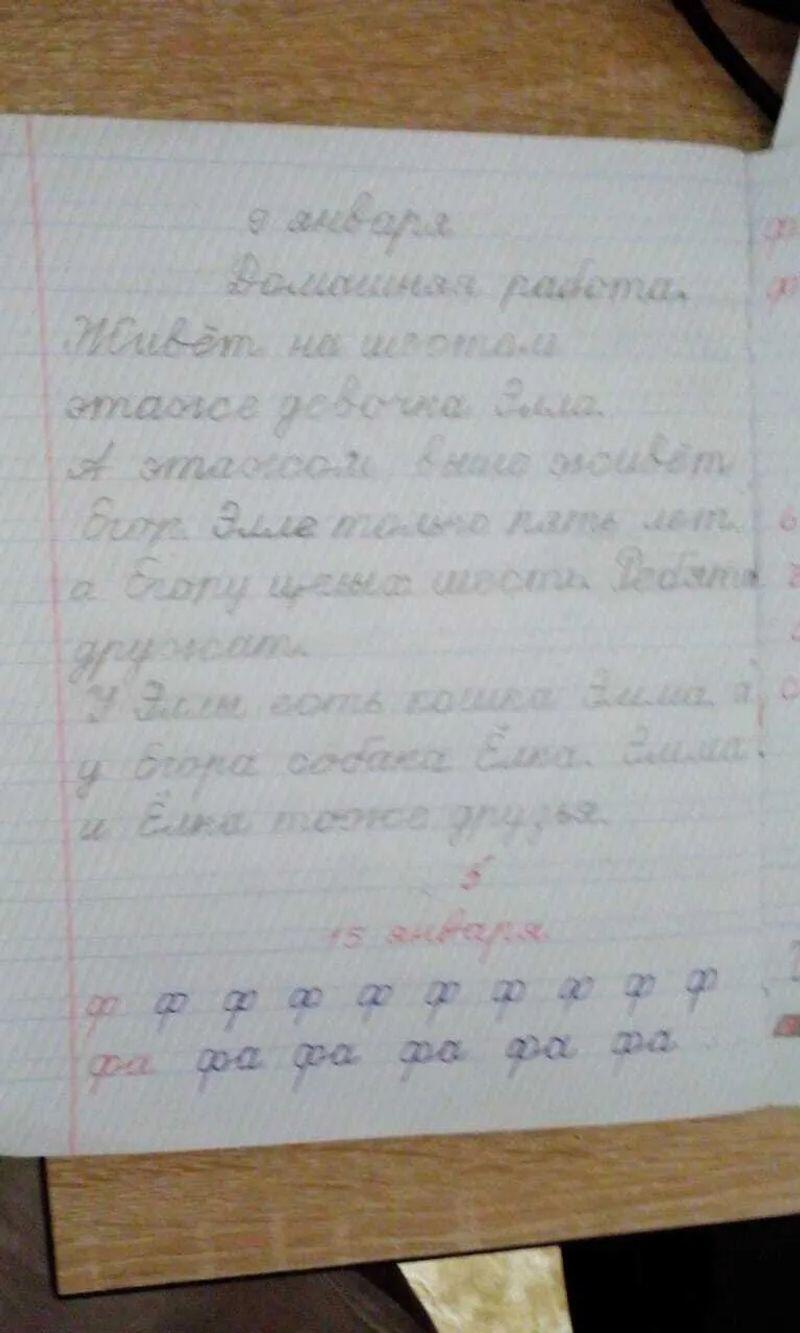 9 января
Домашняя работа.
Живёт на шестом
этаже девочка Элла.
А этажом выше живёт
Егор. Элле только пять лет,
а Егору целых шесть. Ребята
дружат.
У Эллы есть кошка Эмма, а
у Егора собака Ёлка. Эмма
и Ёлка тоже друзья.
5
15 января
ф ф ф ф ф ф ф ф ф ф
фа фа фа фа фа фа